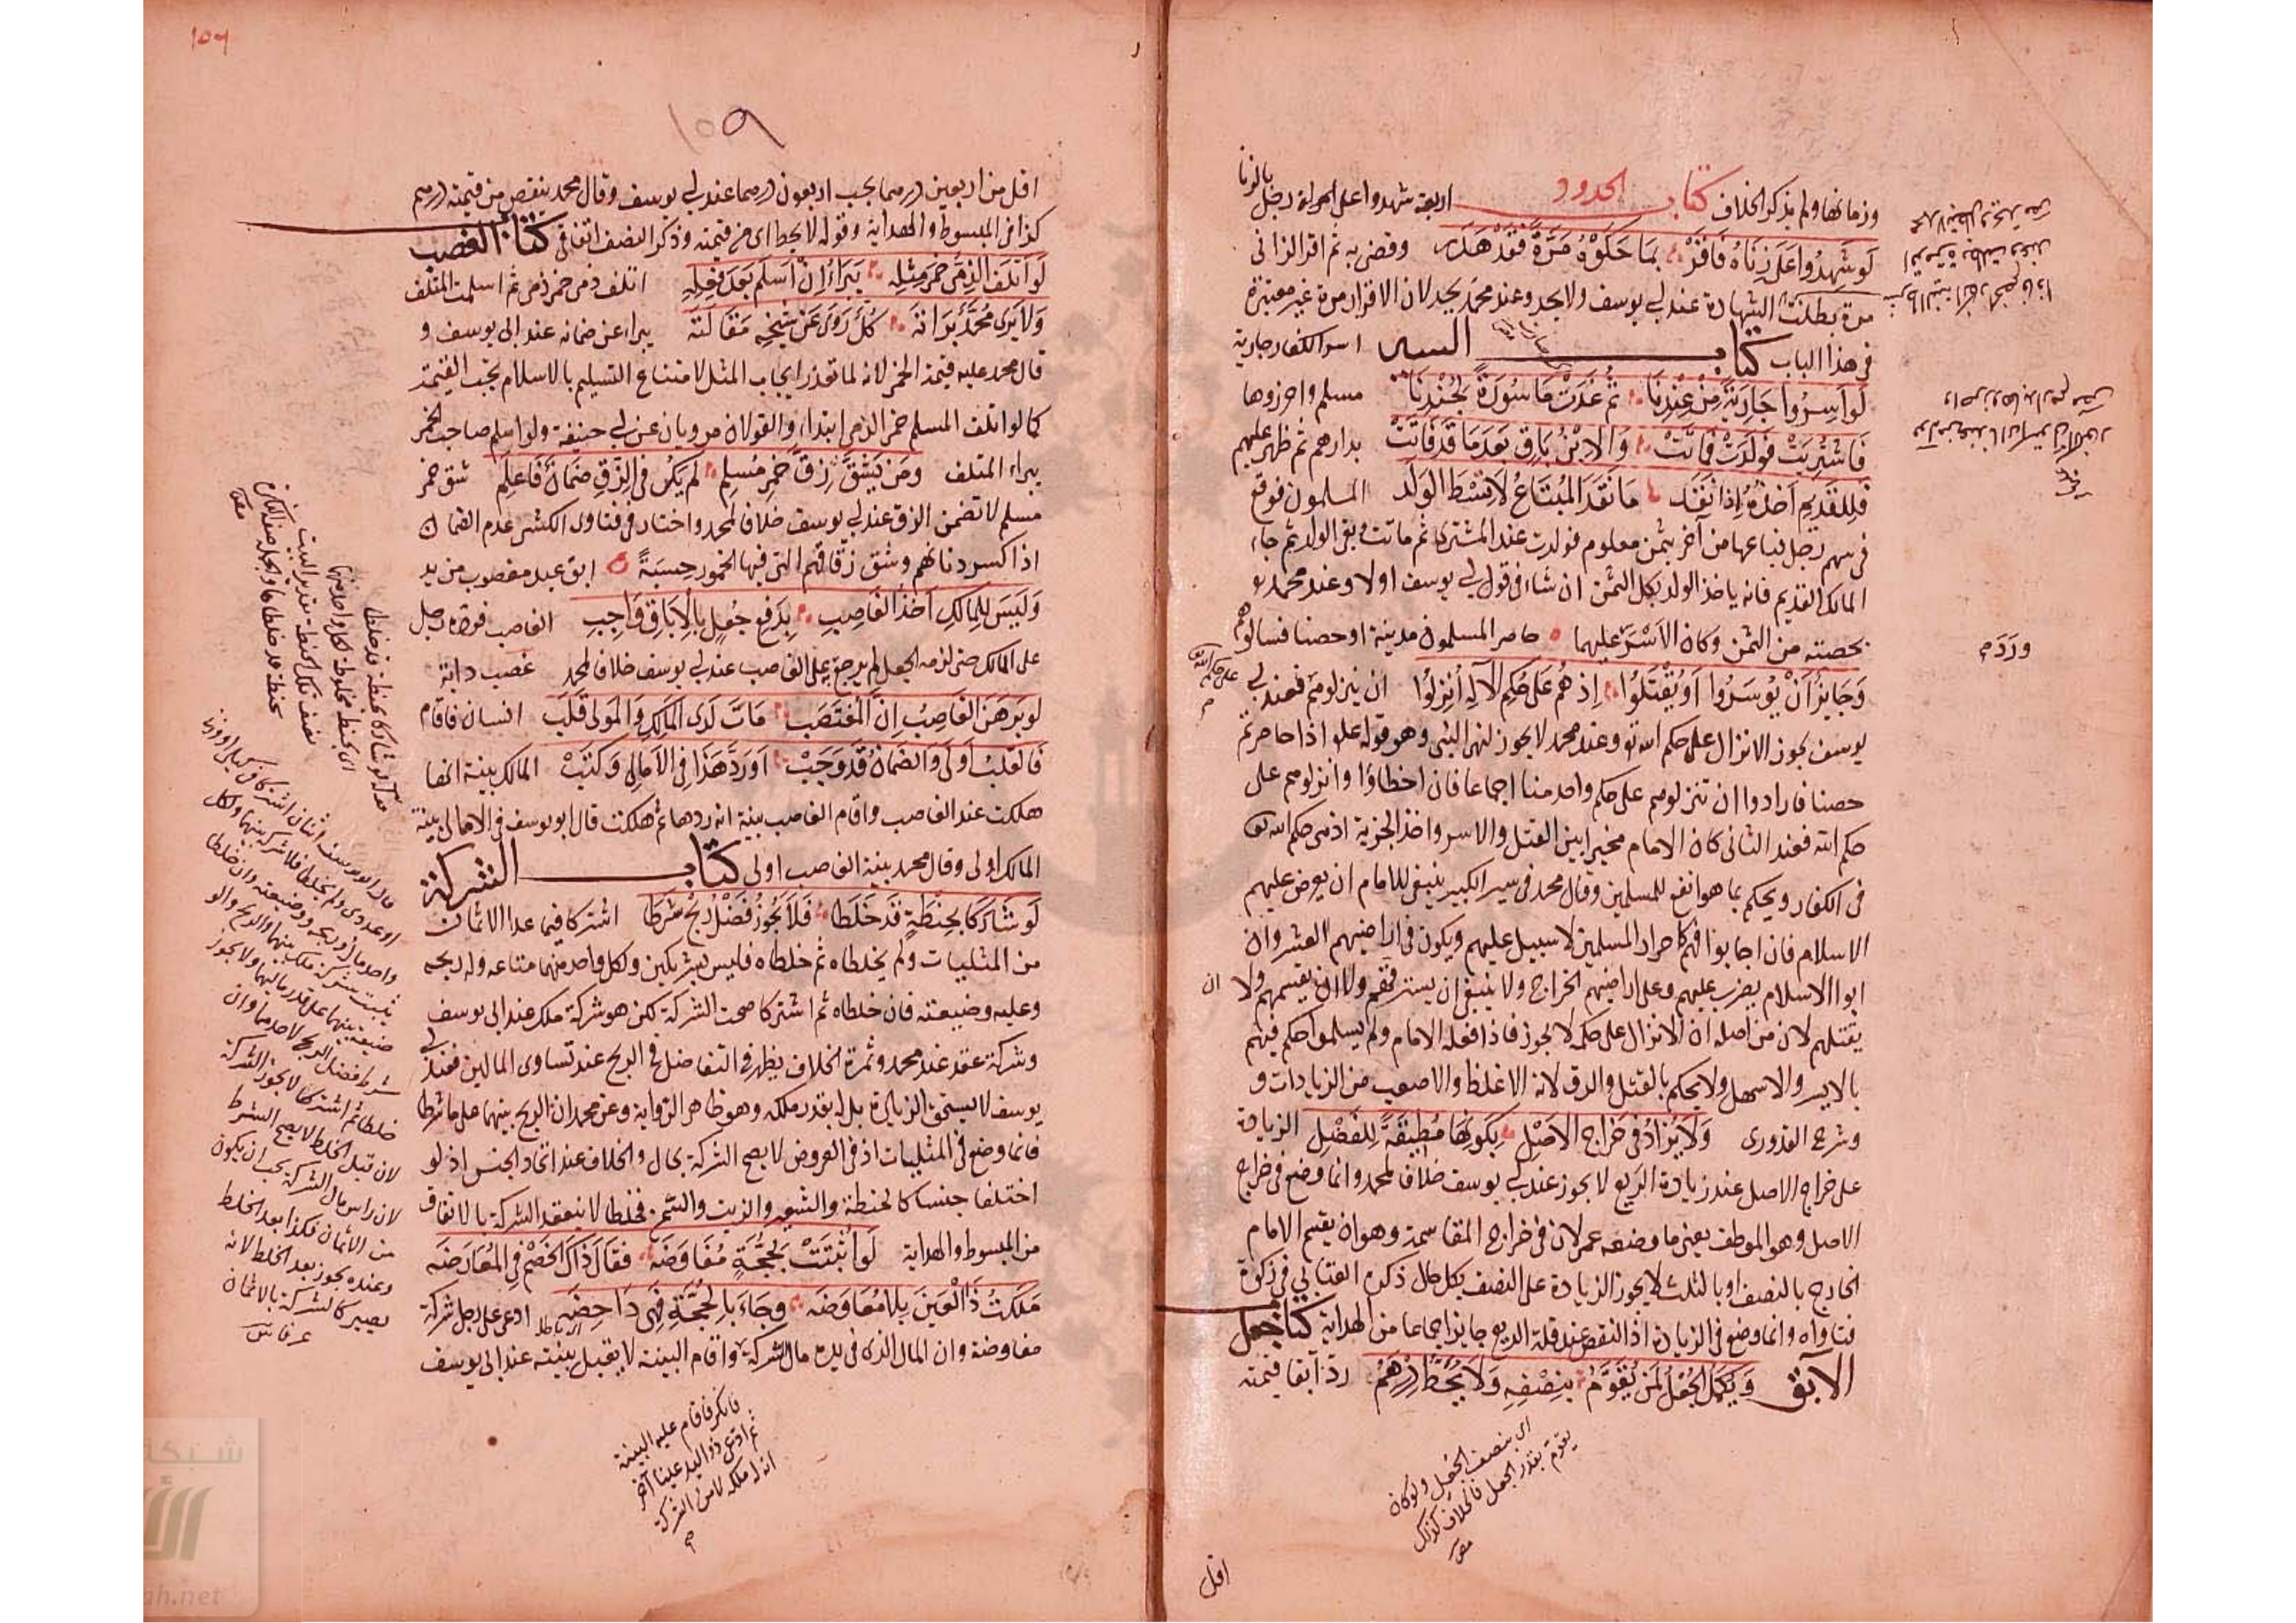 وزمانها ولم يذكر الخلاف كتاب الحدود اربعة شهدوا على امراة رجل بالزنا
لَو شَهِدُوا عَلَى زِنَاهُ فَاَقَرّ بمَا حَكَوْهُ مَرَّةً فَقَدْ هَدَر وقضى به ثم اقر الزانى
مرة بطلت الشهادة عند ابى يوسف ولا يحد وعند محمد يحد لان الاقرار مرة غير معتبرة
فى هذا الباب كتاب السير اسر الكفار جارية
لَو اَسِرُوا جَارِيَةً مِنْ عِنْدِنَا ثُمَّ غَدَتْ مَاسُورَةً لجُنْدِنَا مسلم واحرزوها
فَاشْتُرِيَتْ فَوَلَدَتْ فَمَاتَتْ وَالابْنُ بَاقٍ بَعدَمَا قَد فَاتَتْ بدارهم ثم ظهر عليهم
فَلِلقَدِيمِ اَخذُهُ اِذا نَقَد مَا نَقَدَ المُبْتَاعُ لَا قِسْطَ الوَلَد المسلمون فوقع
فى سهم رجل فباعها من آخر بثمن معلوم فولدت عند المشترى ثم ماتت وبقى الولد ثم جاء
المالك القديم فانه ياخذ الولد بكل الثمن ان شاء فى قول ابى يوسف اولا وعند محمد
بحصته من الثمن وكان الاسْرَ عليهما حاصر المسلمون مدينة او حصنا فسالوا
وَجَايِزٌ اَنْ يُوسَرُوا اَو يُقْتَلُوا اِذ هُم عَلى حُكمِ الآلِه اُنزِلُوا ان ينزلوهم فعند ابى
يوسف يجوز الانزال على حكم الله تعالى وعند محمد لا يجوز لنهى النبى وهو قوله عليه اذا حاصرتم
حصنا فارادوا ان تنزلوهم على حكم واحد منا اجماعا فان اخطاؤا وانزلوهم على
حكم الله فعند الثانى كان الامام مخيرا بين القتل والاسر واخذ الجزية اذ من حكم الله تعالى
فى الكفار ويحكم بما هو انفع للمسلمين وقال محمد فى سير الكبير ينبغى للامام ان يعرض عليهم
الاسلام فان اجابوا فهم كاحرار المسلمين لا سبيل عليهم ويكون فى اراضيهم العشر وان
ابوا الاسلام يضرب عليهم وعلى اراضيهم الخراج ولا ينبغى ان يسترقهم ولا ان يقسمهم ولا ان
يقتلهم لان من اصله ان الانزال على حكمه لا يجوز فاذا فعله الامام ولم يسلموا حكم فيهم
بالايسر والاسهل ولا يحكم بالقتل والرق لانه الاغلظ والاصعب من الزيادات و
وشرح القدورى وَلَا يُزَادُ فى خَرَاجِ الاَصْلِ بِكَونِهَا مُطِيقَةً لِلفَضْلِ الزيادة
على خراج الاصل عند زيادة الريع لا يجوز عند ابى يوسف خلافا لمحمد وانما وضع فى خراج
الاصل وهو الموظف يعنى ما وضعه عمر لان فى خراج المقاسمة وهو ان يقسم الامام
الخارج بالنصف او بالثلث لا يجوز الزيادة على النصف بكل حال ذكره العتابى فى زكوة
فتاواه وانما وضع فى الزيادة اذ النقص عند قلة الريع جايز اجماعا من الهداية كتاب جعل
الآبق وَيَكمُلُ الجُعْلُ لمَن يُقَوَّمُ بنِصْفِهِ وَلَا يُحَطُّ دِرْهَمُ ردّ آبقا قيمته
اى بنصف الجعل ولو كان
يقوم بقدر الجعل فالخلاف كذلك
اقل
١٥٩
اقل من اربعين درهما يجب اربعون درهما عند ابى يوسف وقال محمد ينقص من قيمته درهم
كذا فى المبسوط والهداية وقوله لا يحط اى من قيمته وذكر النصف اتفاقى كتاب الغصب
لَو اَتلَفَ الذِمّىُ خَمرَ مِثلِه يَبرَاُ اِنْ اَسلَم بَعدَ فِعلِهِ اتلف ذمى خمر ذمى ثم اسلم المتلف
وَلَا يَرَى مُحَمَّدٌ بَرَائَه كُلٌّ رَوَى عَنْ شَيْخِهِ مَقَالَتَه يبراء عن ضمانه عند ابى يوسف و
قال محمد عليه قيمة الخمر لانه لما تعذر ايجاب المثل لامتناع التسليم بالاسلام يجب القيمة
كما لو اتلف المسلم خمر الذمى ابتداء والقولان مرويان عن ابى حنيفة ولو اسلم صاحب الخمر
يبراء المتلف ومَن يَشُقَّ زِقَّ خَمرِ مُسلِم لَم يَكُن فى الزِّقِ ضَمَانٌ فَاعلَم شق خمر
مسلم لا تضمن الزق عند ابى يوسف خلافا لمحمد واختار فى فتاوى الكشى عدم الضمان
اذا كسر دنانهم وشق زقاقهم التى فيها الخمور حِسبَةً ابق عبد مغصوب من يد
وَلَيسَ لِلمَالِكِ اَخذُ الغَاصِبِ بدَفعِ جُعلٍ بالاِبَاقِ وَاجِبِ الغاصب فرده رجل
على المالك حتى لزمه الجعل لم يرجع على الغاصب عند ابى يوسف خلافا لمحمد غصب دابة
لو بَرهَنَ الغَاصِبُ اِنَّ المُغتَصَب مَاتَ لَدَى المَالِكِ وَالمَولى قَلَب انسان فاقام
فَالقَلبُ اَولى وَالضَمَانُ قَد وَجَب اَورَدَ هَذَا فِى الاَمَالِى وَكَتَب المالك بينة انها
هلكت عند الغاصب واقام الغاصب بينة انه ردها ثم هلكت قال ابو يوسف فى الامالى بينة
المالك اولى وقال محمد بينة الغاصب اولى كتاب الشركة
لَو شَارَكَا بحِنطَةٍ قَد خَلَطَا فَلَا يَجُوزُ فَضْلُ رِبْحٍ شَرَطَا اشتركا فيما عدا الاثمان
من المثليات ولم يخلطاه ثم خلطاه فليس بشريكين ولكل واحد منهما متاعه وله ربحه
وعليه وضيعته فان خلطاه ثم اشتركا صحت الشركة لكن هو شركة ملك عند ابى يوسف
وشركة عقد عند محمد وثمرة الخلاف يظهر فى التفاضل فى الربح عند تساوى المالين فعند ابى
يوسف لا يستحق الزيادة بل له بقدر ملكه وهو ظاهر الرواية وعن محمد ان الربح بينهما على ما شرطا
فانما وضع فى المثليات اذ فى العروض لا يصح الشركة بحال والخلاف عند اتحاد الجنس اذ لو
اختلفا جنسا كالحنطة والشعير والزيت والسمن فخلطا لا ينعقد الشركة بالاتفاق
من المبسوط والهداية لَو اُثبِتَتْ بحُجَّةٍ مُفَاوَضَه فقَالَ ذَاكَ الخَصْمُ فِى المُعَارَضَه
مَلَكتُ ذَا العَينَ بِلا مُعَاوَضَه وجَاءَ بالحُجَّةِ فَهِى دَاحِضَه اى باطلة ادعى على رجل شركة
مفاوضة وان المال الذى فى يده مال الشركة واقام البينة لا يقبل بينته عند ابى يوسف
فانكر فاقام عليه البينة
ثم ادعى ذو اليد عينا آخر
انه ملكه لا من الشركة
قال ابو يوسف اثنان اشتركا فى كيلى او وزنى
او عددى ولم يخلطا فلا شركة بينهما ولكل
واحد ماله وربحه ووضيعته وان خلطا
يثبت شركة ملك بينهما والربح والو
ضيعة بينهما على قدر ماليهما ولا يجوز
شرط فضل الربح لاحدهما وان
خلطا ثم اشتركا لا يجوز الشركة
لان قبل الخلط لا يصح الشرط
لان راس مال الشركة يجب ان يكون
من الاثمان فكذا بعد الخلط
وعنده يجوز بعد الخلط لانه
يصير كالشركة بالاثمان